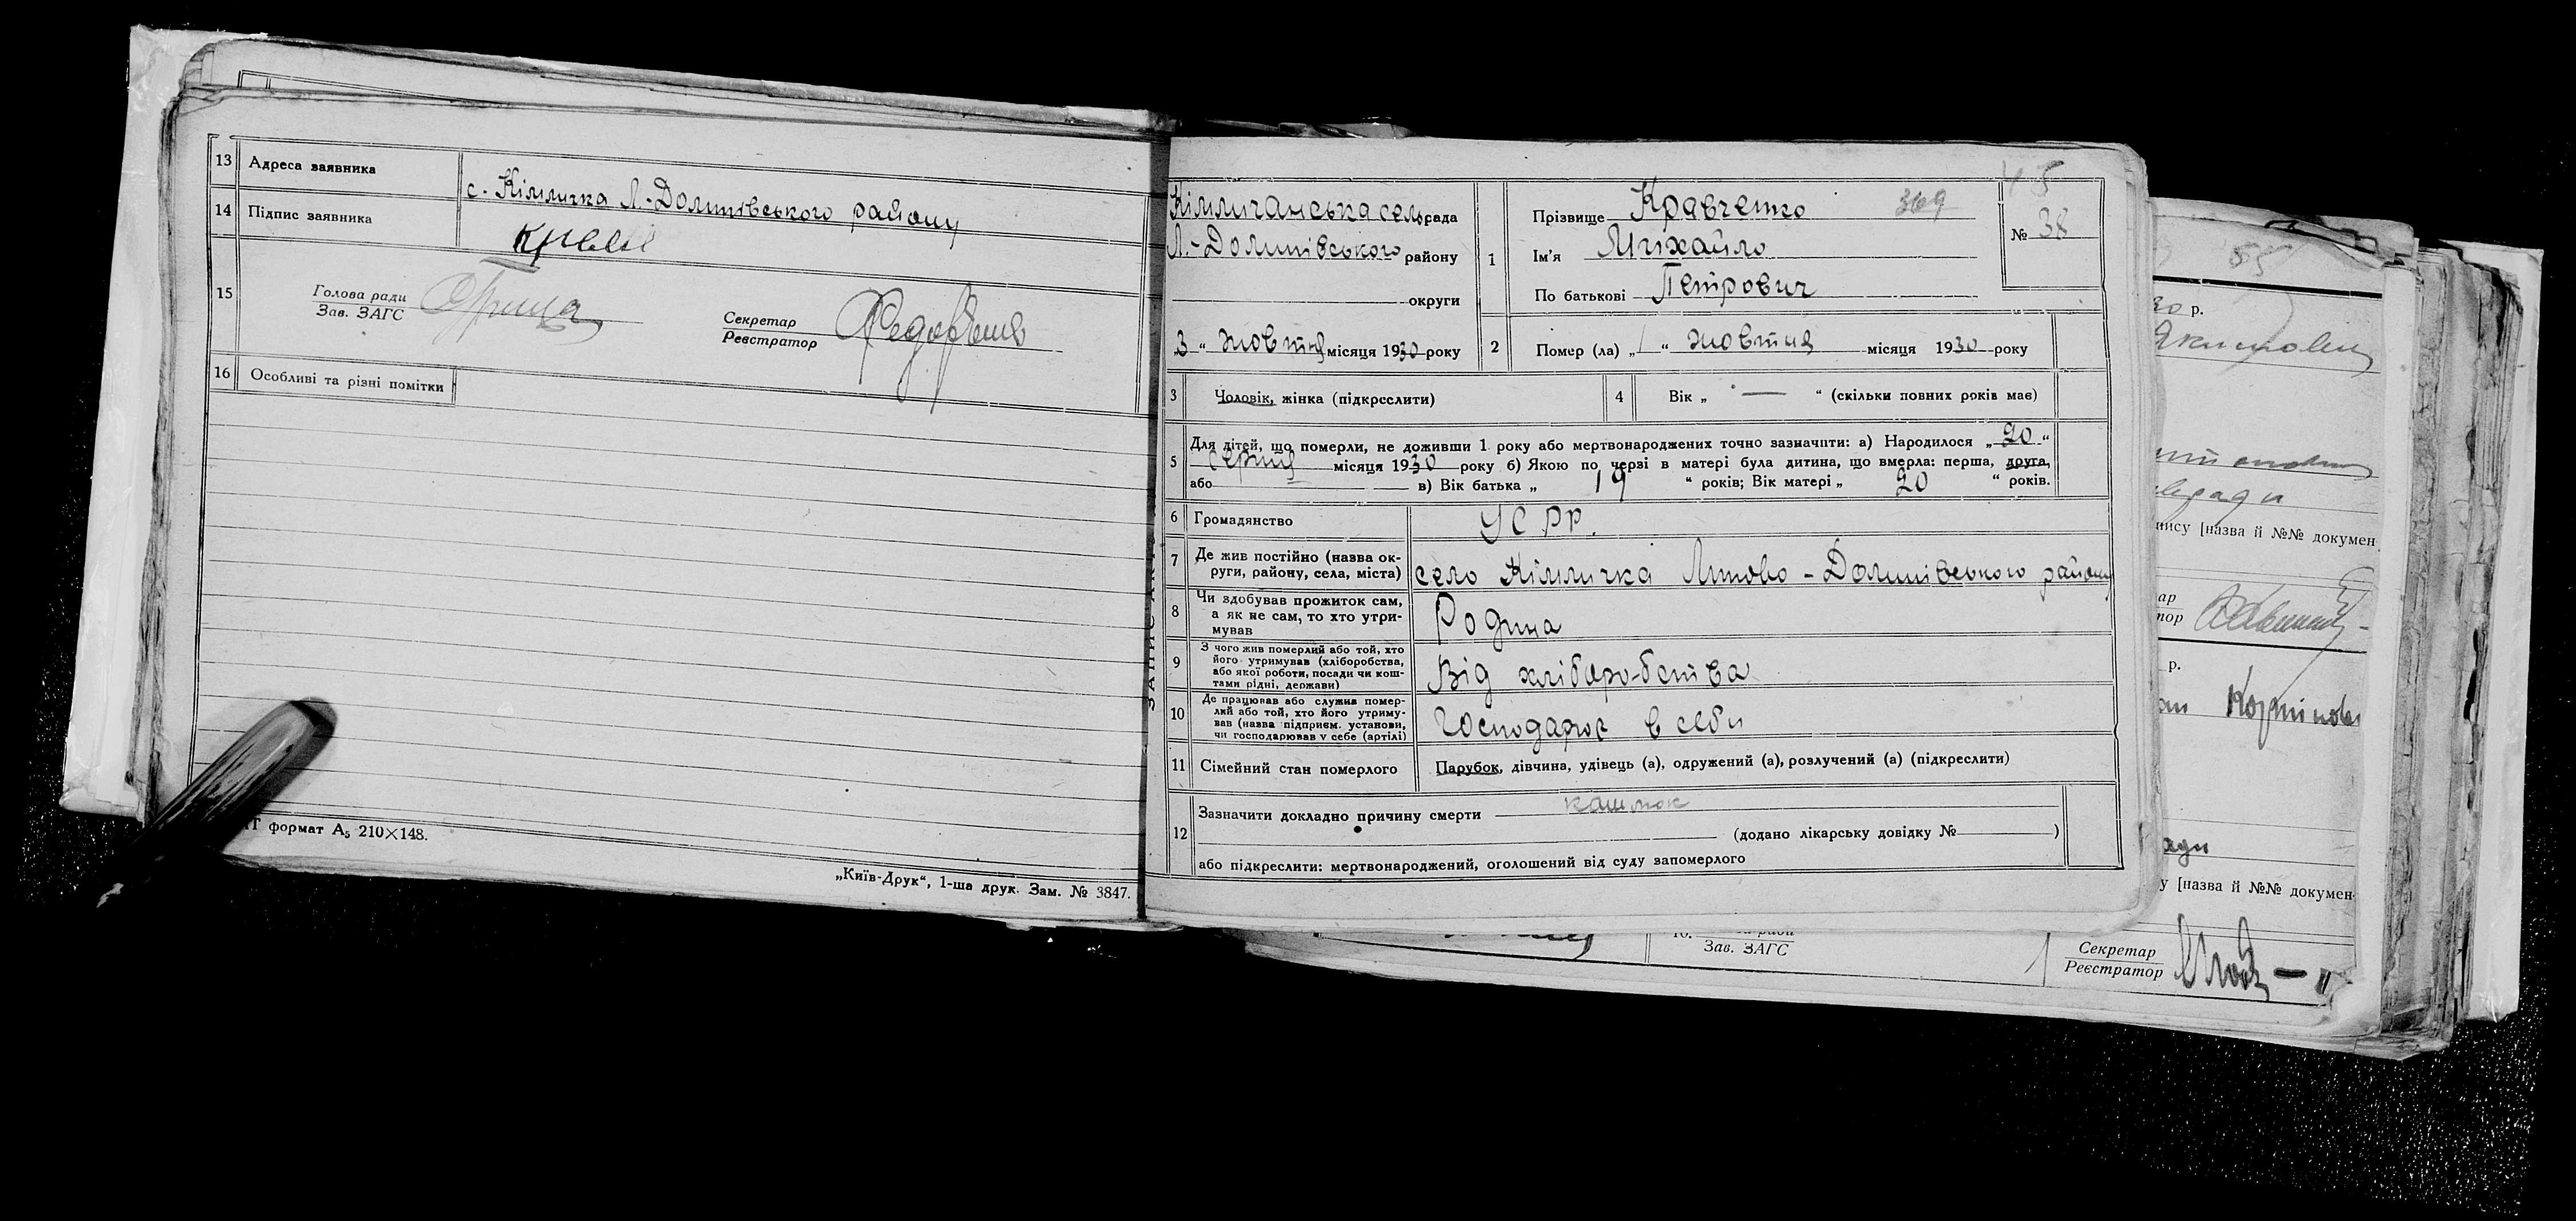 13 Адреса заявника
с. Кіллична Л.-Долинівського району
14 Підпис заявника
15
Голова ради
Зав. ЗАГС
Секретар
Реєстратор
16 Особливі та різні помітки
Т формат А5 210×148.
„Київ-Друк“, 1-ша друк. Зам. № 3847.
сельрада
Л.-Долинівського району
округи
3 “ жовтня місяця 1930 року
1
Прізвище Кравченко 369
Ім'я Михайло
По батькові Петрович
№ 38
2 Помер (ла) „1“ жовтня місяця 1930 року
3 Чоловік, жінка (підкреслити)
4 Вік „ — “ (скільки повних років має)
5 Для дітей, що померли, не доживши 1 року або мертвонароджених точно зазначити: а) Народилося „20“
серпня місяця 1930 року б) Якою по черзі в матері була дитина, що вмерла: перша, друга,
або в) Вік батька „ 19 “ років; Вік матері „ 20 “ років.
6 Громадянство УСРР.
7 Де жив постійно (назва ок-
руги, району, села, міста) село Долинівського району
8 Чи здобував прожиток сам,
а як не сам, то хто утри-
мував Родина
9 З чого жив померлий або той, хто
його утримував (хліборобства,
або якої роботи, посади чи кош-
тами рідні, держави) Від хліборобства
10 Де працював або служив помер-
лий або той, хто його утриму-
вав (назва підприєм. установи,
чи господарював у себе (артілі) Господарює в себи
11 Сімейний стан померлого Парубок, дівчина, удівець (а), одружений (а), розлучений (а) (підкреслити)
12 Зазначити докладно причину смерти кашлюк
(додано лікарську довідку № )
або підкреслити: мертвонароджений, оголошений від суду запомерлого
30 р.
пису [назва й №№ докумен
ар
тор
р.
ади
у [назва й №№ докумен
Зав. ЗАГС
Секретар
Реєстратор